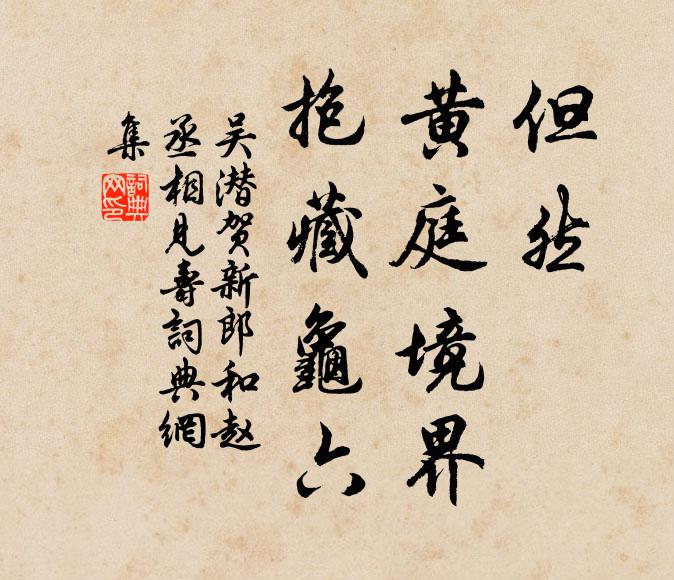 但然
黄庭境界
抱藏龜六
吴潜贺新郎和赵
丞相见壽詞典網
集
詞典網印